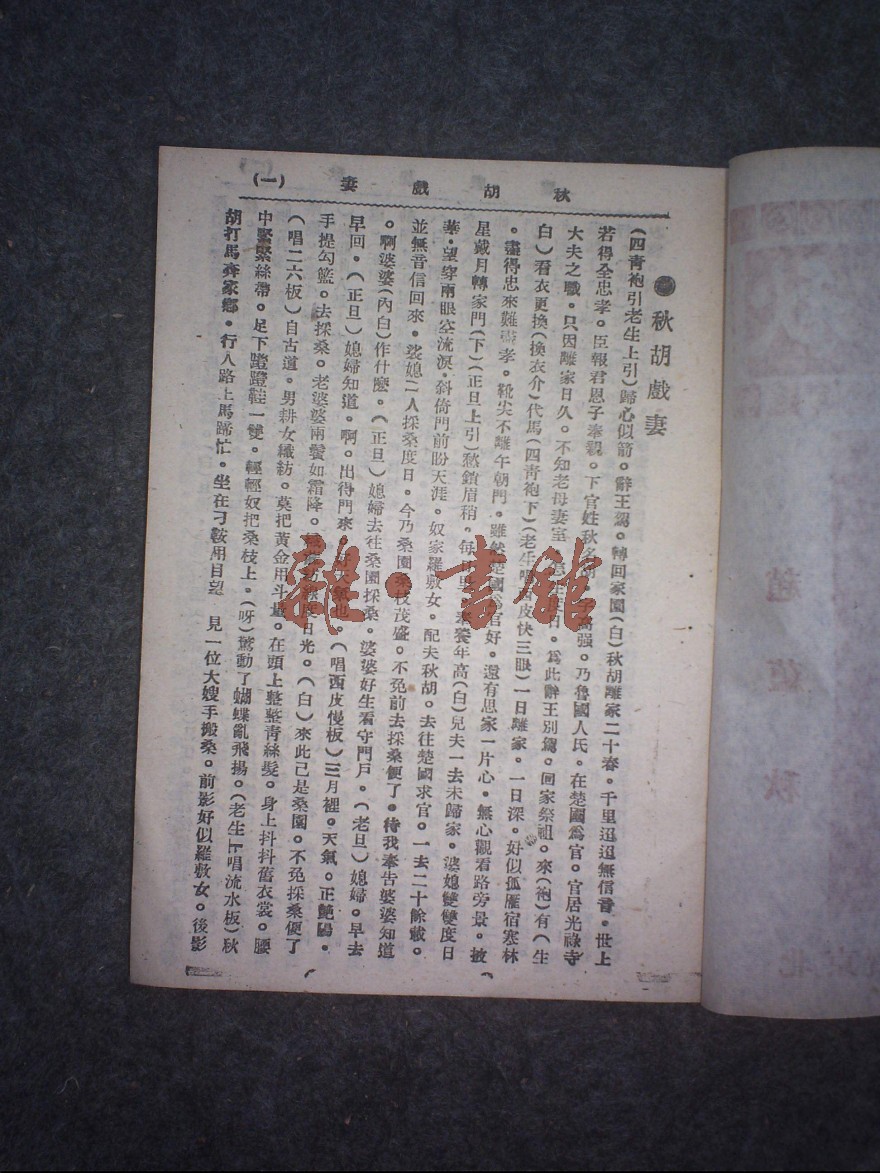 秋胡戲妻 (一)
秋胡戲妻
(四青袍引老生上引)歸心似箭。辭王駕。轉回家園(白)秋胡離家二十春。千里迢迢無信音。世上
若得全忠孝。臣報君恩子奉親。下官姓秋名胡。強。乃魯國人氏。在楚國爲官。官居光祿寺
大夫之職。只因離家日久。不知老母妻室爲此辭王別駕。回家祭祖。來(袍)有(生
白)看衣更換(換衣介)代馬(四青袍下)(老生唱皮快三眼)一日離家。一日深。好似孤雁宿寒林
。盡得忠來難盡孝。靴尖不離午朝門。雖然楚國爲官好。還有思家一片心。無心觀看路旁景。披
星戴月轉家門(下)(正旦上引)愁鎖眉稍。每年高(白)兒夫一去未歸家。婆媳雙雙度日
華。望穿兩眼空流淚。斜倚門前盼天涯。奴家羅敷女。配夫秋胡。去往楚國求官。一去二十餘載。
並無音信回來。婆媳二人採桑度日。今乃桑園桑枝茂盛。不免前去採桑便了。待我奉告婆婆知道
。啊婆婆(內白)作什麼。(正旦)媳婦去往桑園採桑。婆婆好生看守門戶。(老旦)媳婦。早去
早回。(正旦)媳婦知道。啊。出得門來。好天氣也。(唱西皮慢板)三月裡。天氣。正艷陽。
手提勾籃。去採桑。老婆婆兩鬢如霜降。度日光。(白)來此已是桑園。不免採桑便了
(唱二六板)自古道。男耕女織紡。莫把黃金用斗量。在頭上整整青絲髮。身上抖抖舊衣裳。腰
中緊緊絲帶。足下蹬蹬鞋一雙。輕輕奴把桑枝上。(呀)驚動了蝴蝶亂飛揚。(老生上唱流水板)秋
胡打馬奔家鄉。行人路上馬蹄忙。坐在刁鞍用目望 見一位大嫂手搬桑。前影好似羅敷女。後影
雜·書館